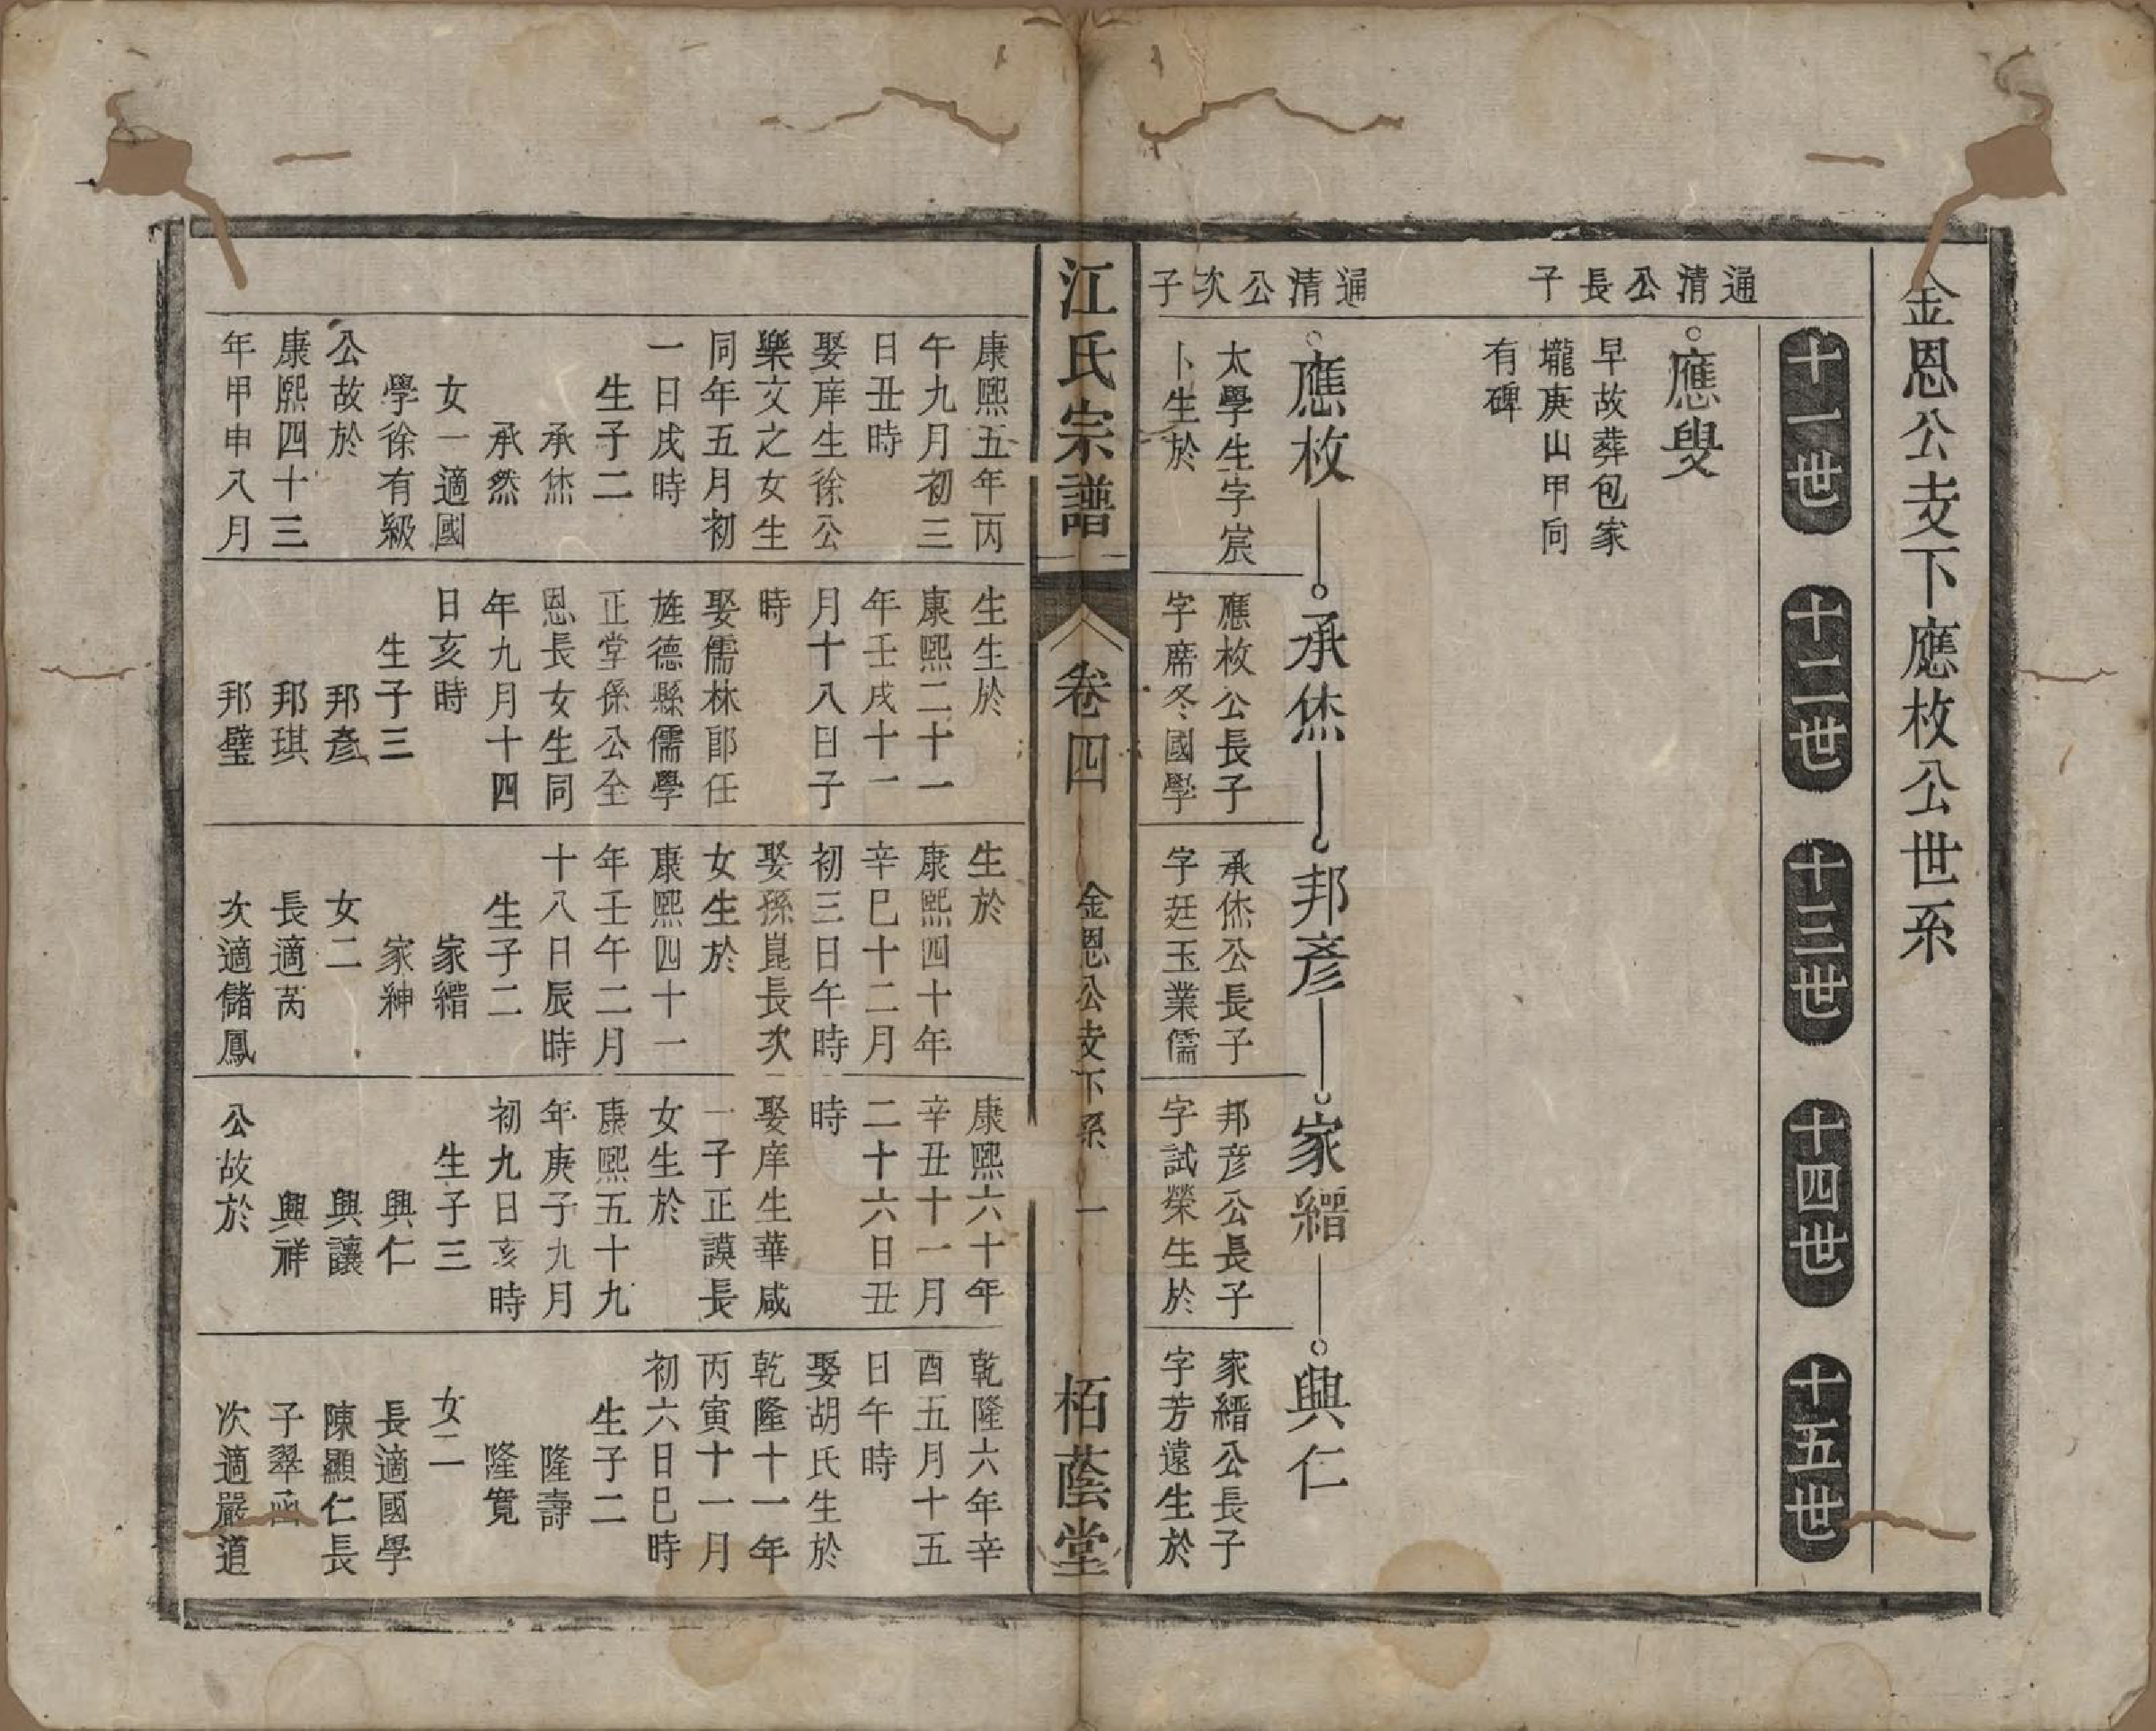 金恩公支下應枚公世系
十一世
十二世
十三世
十四世
十五世
通清公長子
應叟
早故葬包家
壠庚山甲向
有碑
通清公次子
應枚
承烋
邦彥
家縉
興仁
太學生字宸
卜生於
應枚公長子
字席冬國學
承烋公長子
字廷玉業儒
邦彥公長子
字試榮生於
家縉公長子
字芳遠生於
江氏宗譜
卷四
金恩公支下系
一
栢蔭堂
康熙五年丙
午九月初三
日丑時
娶庠生徐公
樂文之女生
同年五月初
一日戌時
生子二
承烋
承然
女一適國
學徐有級
公故於
康熙四十三
年甲申八月
生生於
康熙二十一
年壬戌十一
月十八日子
時
娶儒林郎任
旌德縣儒學
正堂孫公全
恩長女生同
年九月十四
日亥時
生子三
邦彥
邦琪
邦璧
生於
康熙四十年
辛巳十二月
初三日午時
娶孫崑長次
女生於
康熙四十一
年壬午二月
十八日辰時
生子二
家縉
家紳
女二
長適芮
次適儲鳳
康熙六十年
辛丑十一月
二十六日丑
時
娶庠生華咸
一子正謨長
女生於
康熙五十九
年庚子九月
初九日亥時
生子三
興仁
興讓
興祥
公故於
乾隆六年辛
酉五月十五
日午時
娶胡氏生於
乾隆十一年
丙寅十一月
初六日巳時
生子二
隆壽
隆寬
女二
長適國學
陳顯仁長
子翠函
次適嚴道